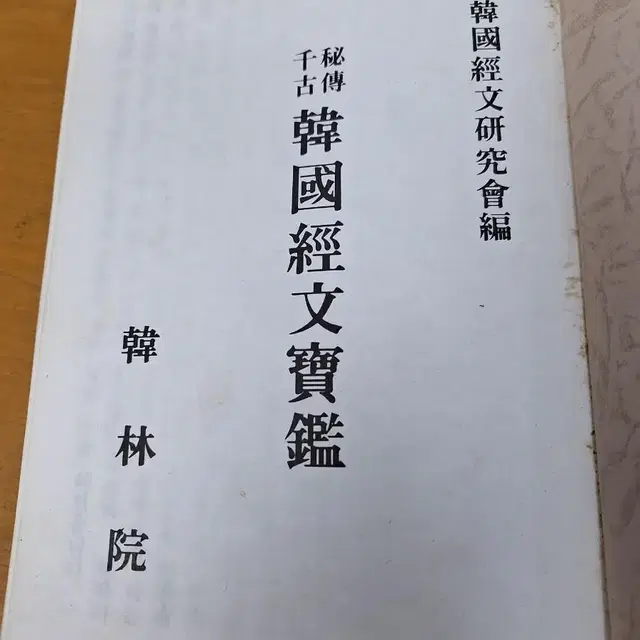 韓國經文硏究會編
秘傳
千古
韓國經文寶鑑
韓林院